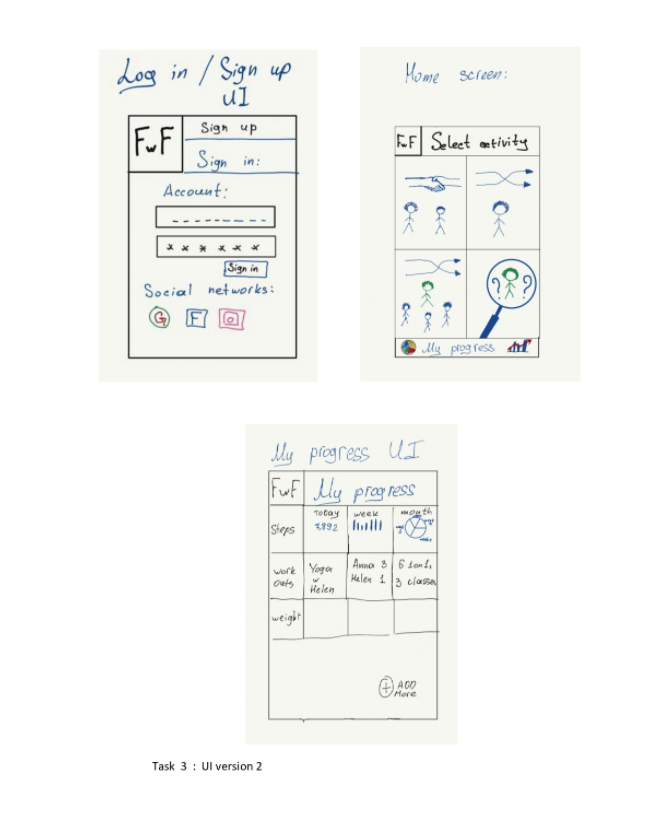 Log in / Sign up
UI
FwF
Sign up
Sign in:
Account:
* * * * * *
Sign in
Social networks:
G F
Home screen:
FwF Select activity
? ?
My progress
My progress UI
FwF My progress
Steps
Today
7,892
week
month
work
outs
Yoga
w
Helen
Anna 3
Helen 1
6 1on1,
3 classes
weight
+ ADD
More
Task 3 : UI version 2